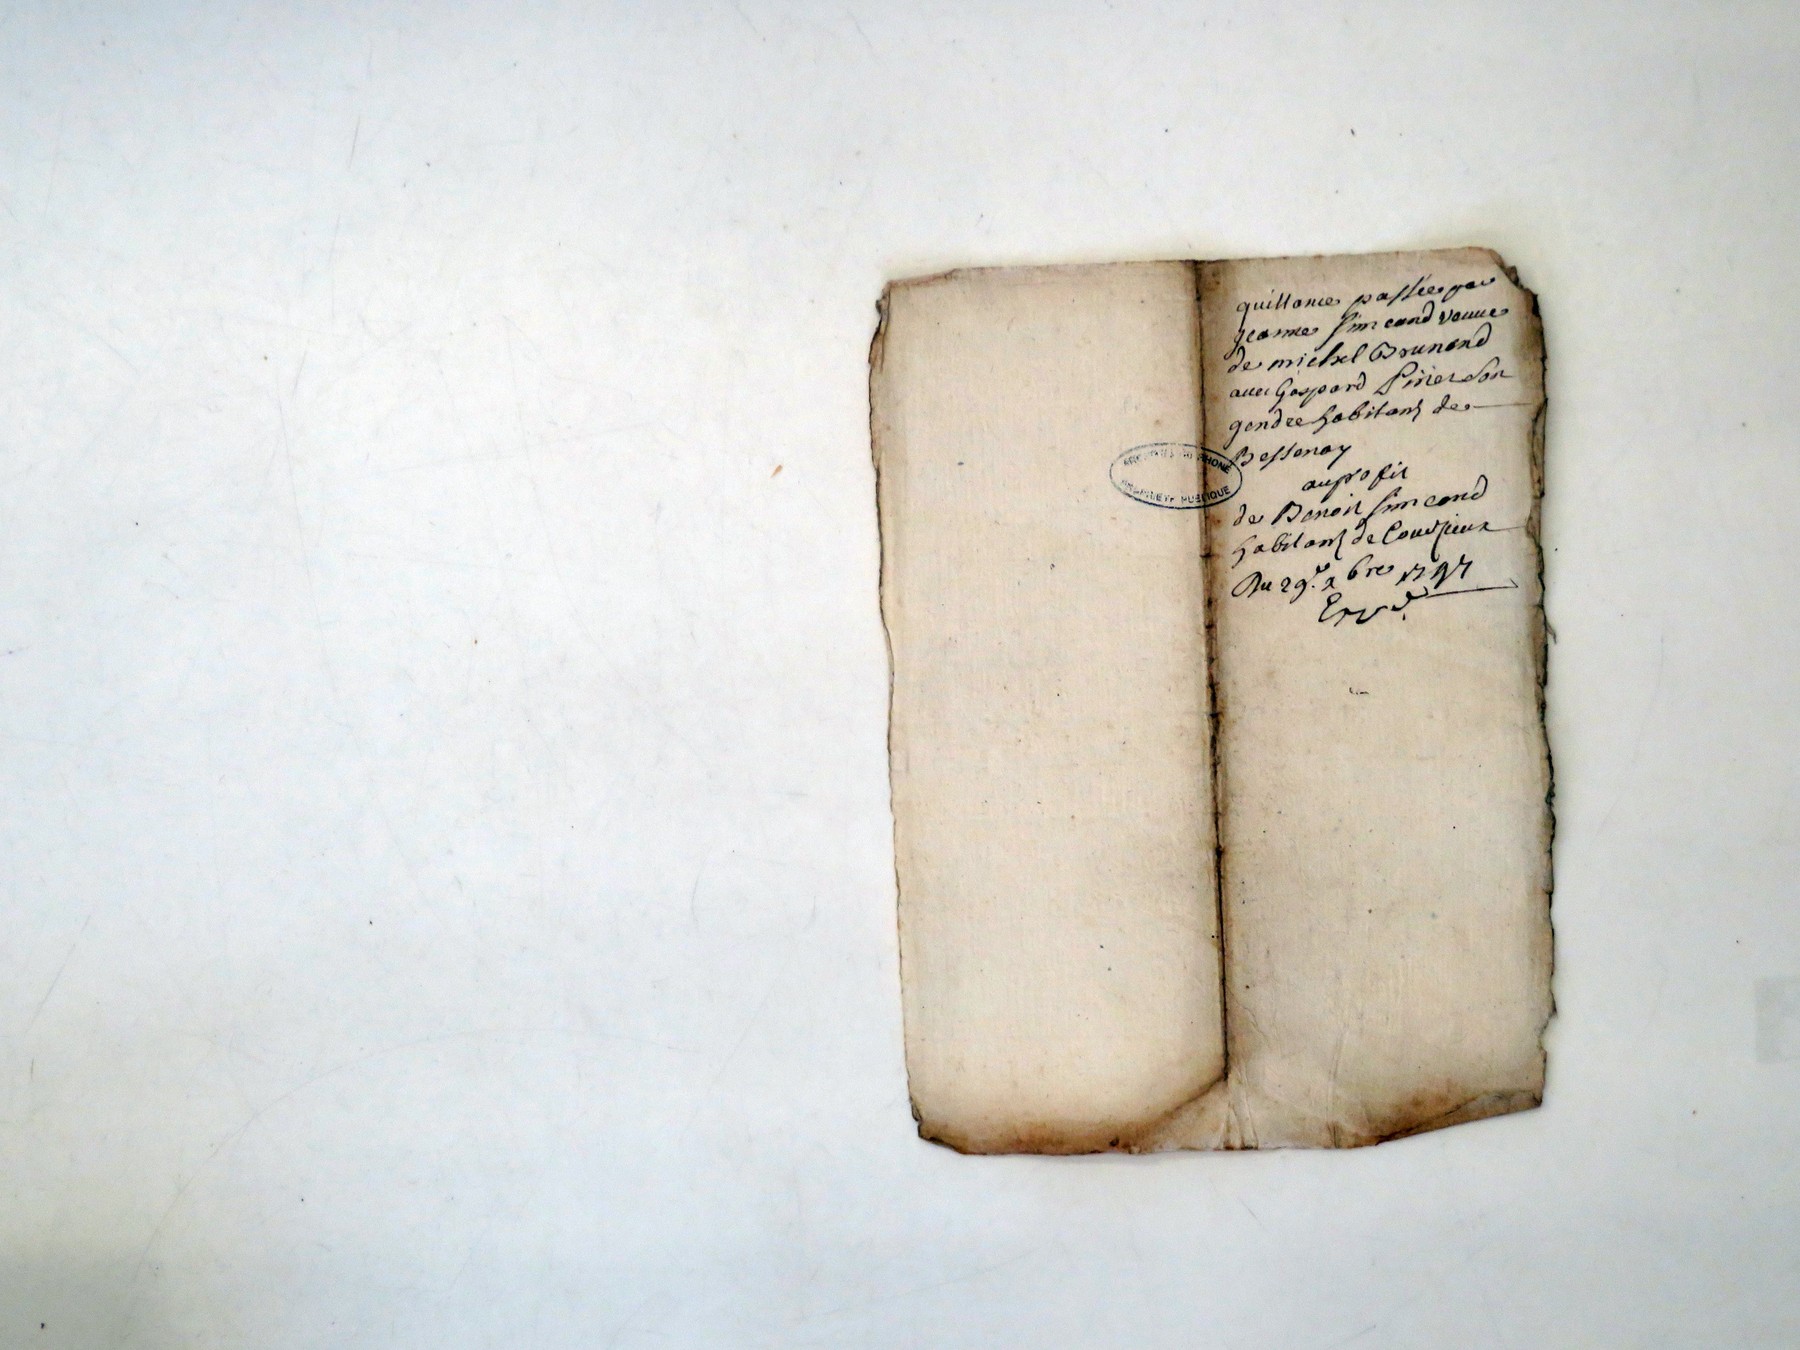 quittance passée par
jeanne simeand veuve
de michel Brunand
avec Gaspard Pirier son
gendre habitant de
Bessenay
au profit
de Benoit simeand
habitant de Courzieux
Du 29e. 9bre 1747
ARCHIVES DU RHONE
PROPRIETE PUBLIQUE